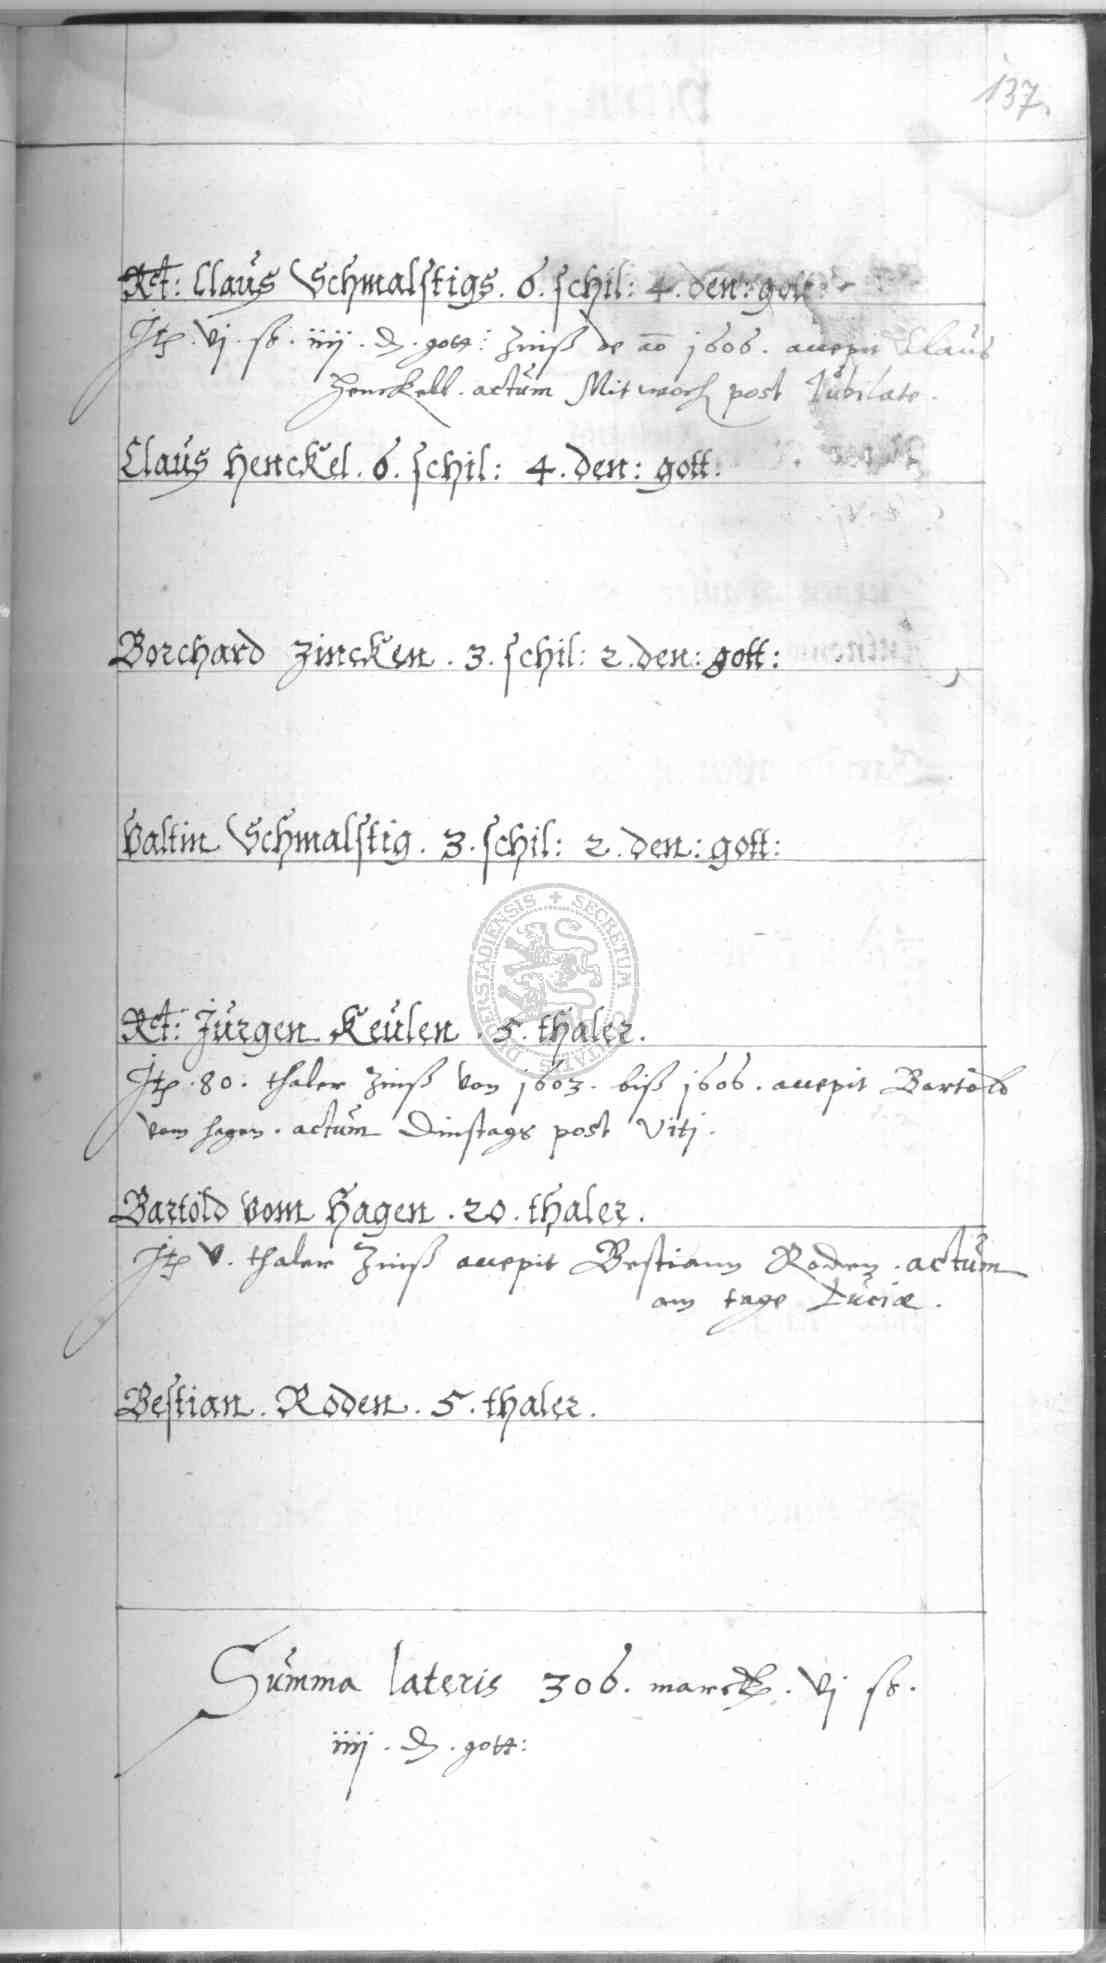 137.
Rt: Claus Schmalstigs. 6. schil: 4. den: gott:
Jtz. vj. sß. iiij. d. gott: Zinß de ao 1606. accepit Claus
Henckell. actum Mitwoch post Jubilate.
Claus Henckel. 6. schil: 4. den: gott:
Borchard Zincken. 3. schil: 2. den: gott:
Valtin Schmalstig. 3. schil: 2. den: gott:
Rt: Jürgen Keulen. 5. thaler.
Jtz. 80. thaler Zinß von 1603. biß 1606. accepit Bartold
vom hagen. actum Dinstags post Viti.
Bartold vom Hagen. 20. thaler.
Jtz v. thaler Zinß accepit Bestiann Roden. actum
am tage Luciæ.
Bestian. Roden. 5. thaler.
Summa lateris 306. marck. vj sß.
iiij. d. gott:
SECRETUM CIVITATIS DUDERSTADIENSIS